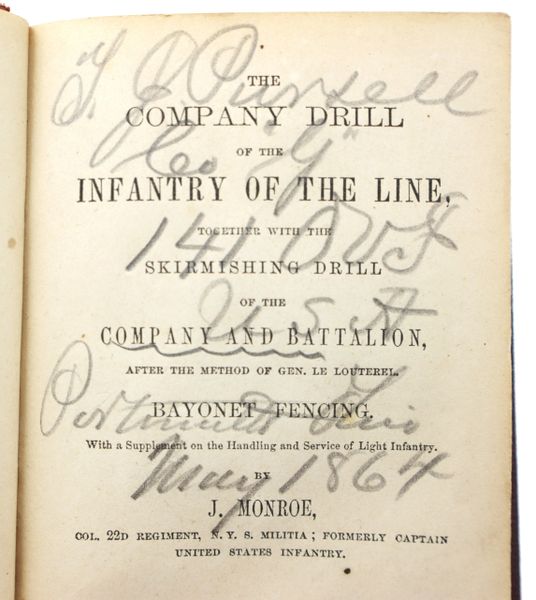 T. C. Pursell
THE
COMPANY DRILL
OF THE
Co "G"
INFANTRY OF THE LINE,
TOGETHER WITH THE
141 O V I
SKIRMISHING DRILL
OF THE
U S A
COMPANY AND BATTALION,
AFTER THE METHOD OF GEN. LE LOUTEREL.
BAYONET FENCING.
With a Supplement on the Handling and Service of Light Infantry.
May 1864
BY
J. MONROE,
COL. 22D REGIMENT, N. Y. S. MILITIA; FORMERLY CAPTAIN
UNITED STATES INFANTRY.